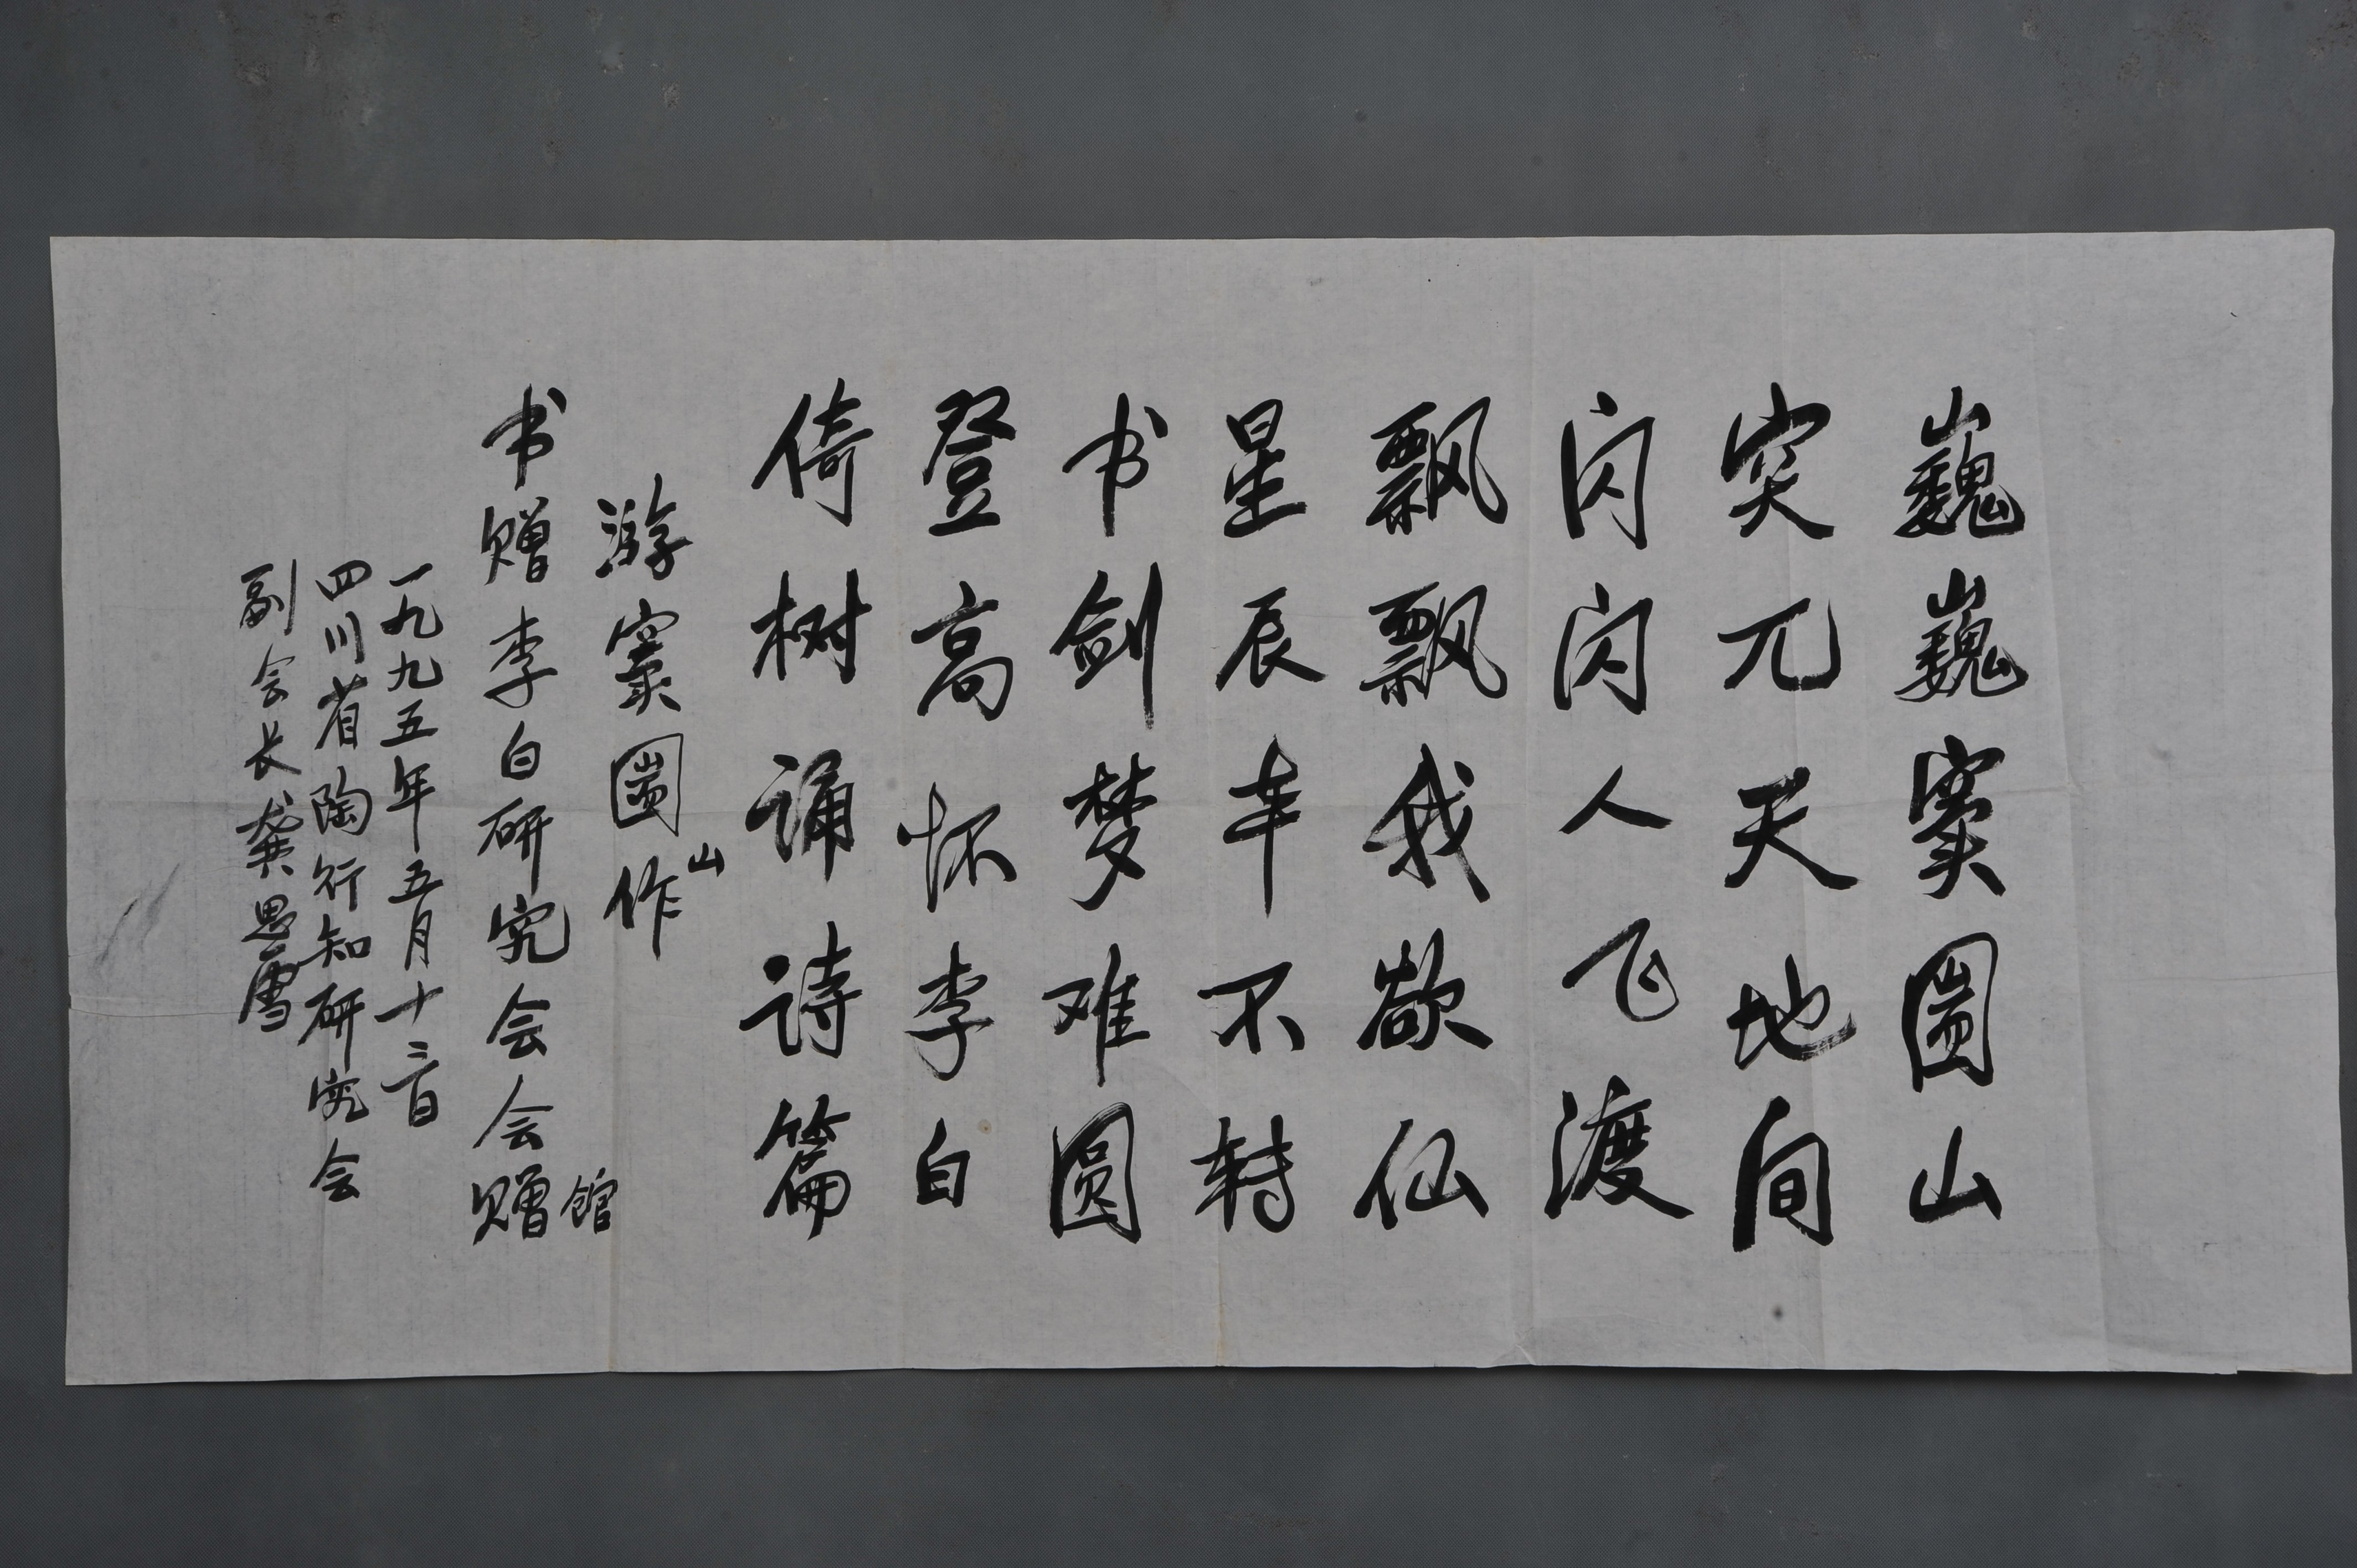 巍巍窦圌山
突兀天地间
闪闪人飞渡
飘飘我欲仙
星辰车不转
书剑梦难圆
登高怀李白
倚树诵诗篇
游窦圌山作
书赠李白研究会会馆赠
一九九五年五月十二日
四川省陶行知研究会
副会长龚思雪